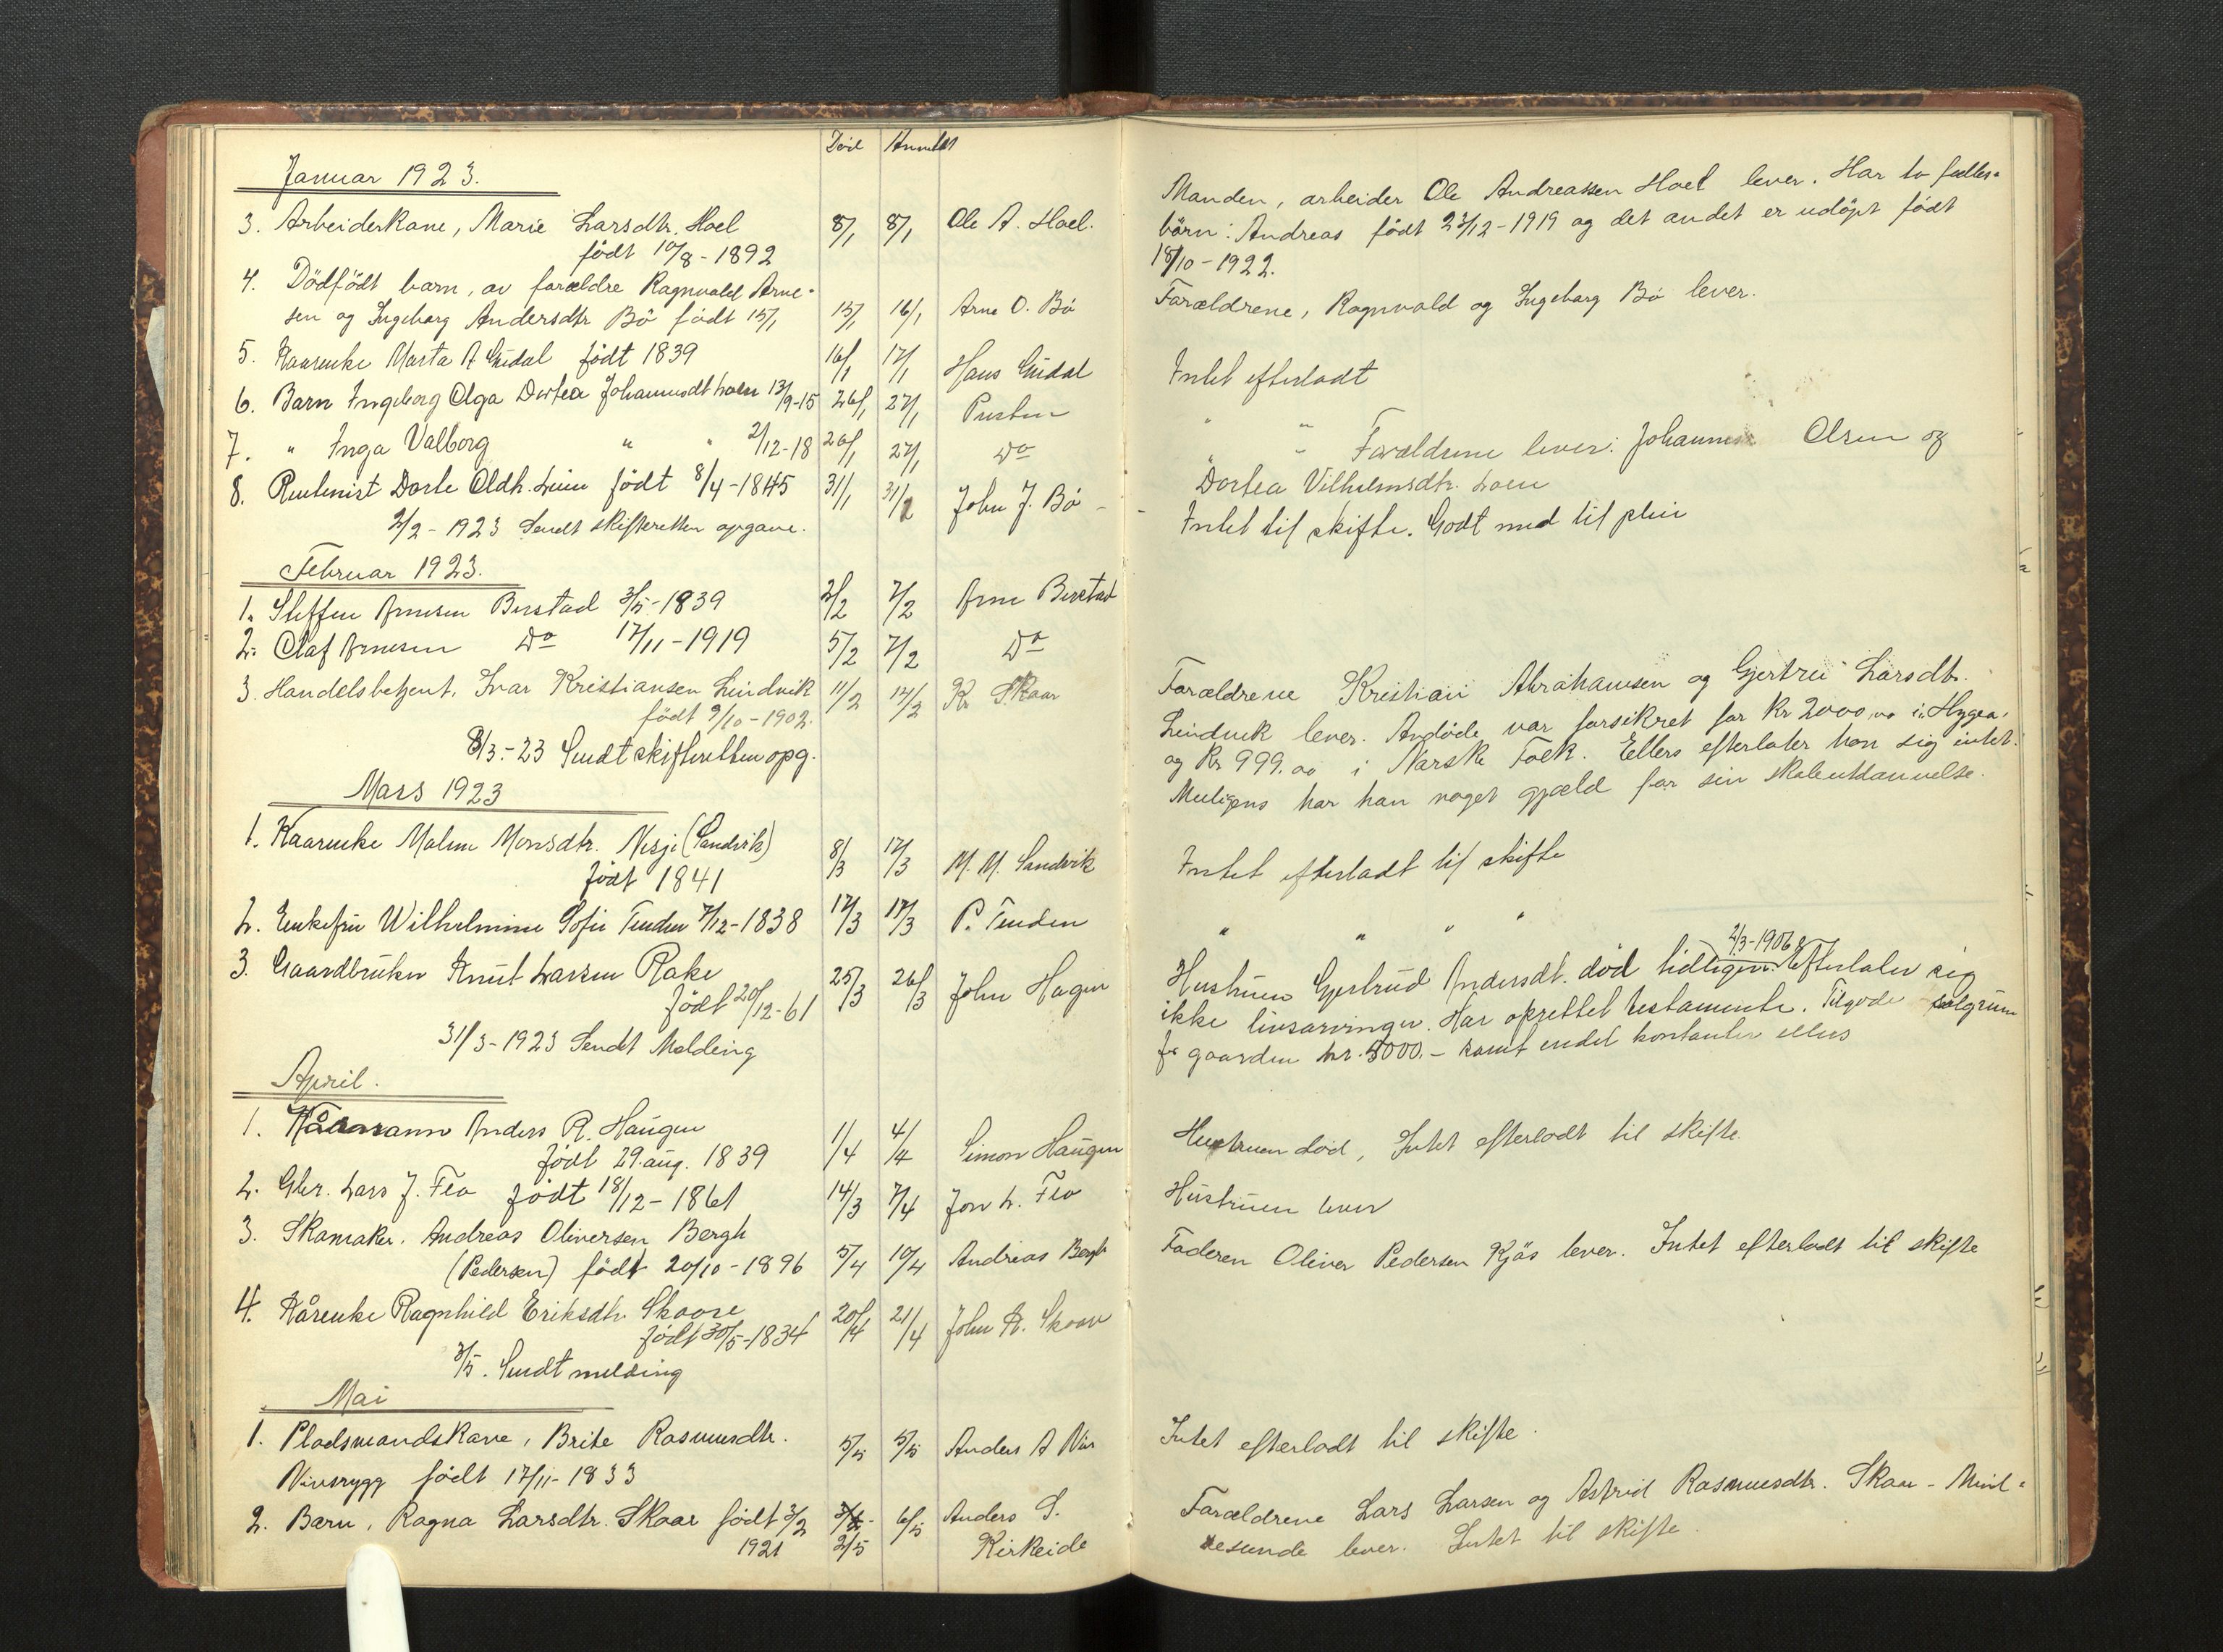 Død Anmeldt
Januar 1923.
3. Arbeiderkone, Marie Larsdtr. Hoel 8/1 8/1 Ole A. Hoel.
født 10/8-1892
4. Dödfödt barn, av forældre Ragnvald Arne-
sen og Ingeborg Andersdtr Bö födt 15/1 15/1 16/1 Arne O. Bö
5. Kaarenke Marta A Gudal födt 1839 16/1 17/1 Hans Gudal
6. Barn Ingeborg Olga Dortea Johannesdt Loen 13/9-15 26/1 27/1 Presten
7. " Inga Valborg " " 2/12-18 26/1 27/1 Do
8. Rentenist Dorte Oldk. født 8/4-1845 31/1 31/1 John J. Bö
2/2-1923 Sendt skifteretten opgave.
Februar 1923.
1. Steffen Arnesen Berstad 3/5-1839 2/2 7/2 Arne Berstad
2. Olaf Arnesen Do 17/11-1919 5/2 7/2 Do
3. Handelsbetjent, Ivar Kristiansen Lindvik 11/2 12/2 Kr Skaar
født 9/10-1902.
8/3.-23 Sendt skifteretten opg.
Mars 1923
1. Kaarenke Malene Monsdtr. Nesje (Sandvik) 8/3 12/3 M. M. Sandvik
født 1841
2. Enkefru Wilhelmine Sofie Tenden 7/12-1838 17/3 17/3 P. Tenden
3. Gaardbruker Knut Larsen Rake 25/3 26/3 John Hagen
født 20/12-61
31/3-1923 Sendt Melding
April.
1. Kåmann Anders R. Haugen 1/4 4/4 Simon Haugen
født 29. aug. 1839
2. Gbr. Lars J. Flo født 18/12-1861 14/3 7/4 Jon L. Flo
3. Skomaker. Andreas Oliversen Bergh
(Pedersen) født 20/10-1896 5/4 10/4 Andreas Bergh
4. Kårenke Ragnhild Eriksdtr Skaare 20/4 21/4 John R. Skaar
født 30/5-1834
3/5. Sendt melding
Mai
1. Pladsmandskone, Brite Rasmusdtr. 5/5 5/5 Anders A
Nivsrygg født 17/11-1833
2. Barn, Ragna Larsdtr. Skaar født 3/2 6/5 Anders S.
1921 2/5 Kirkeide
Manden, arbeider Ole Andreassen Hoel lever. Har to fælles-
börn: Andreas födt 23/12-1919 og det andet er udöpt født
18/10-1922.
Forældrene, Ragnvald og Ingeborg Bö lever.
Intet efterladt
" " Forældrene lever: Johannes Olsen og
Dortea Vilhelmsdtr. Loen
Intet til skifte. Godt med til pleie
Forældrene Kristian Abrahamsen og Gjertru Larsdtr.
Lindvik lever. Avdøde var forsikret for Kr 2000,00 i "Hygea"
og Kr 999.00 i Norske Folk. Ellers efterlater han sig intet.
Muligens har han noget gjæld for sin skoleutdannelse.
Intet efterladt til skifte
" " " "
2/3-1906
Hustruen Gjertrud Andersdt. död tidligere. Efterlater sig
ikke livsarvinger. Har oprettet testamente. Tilgode salgsum
for gaarden kr. 5000.- samt endel kontanter ellers
Hustruen död, Intet efterladt til skifte.
Hustruen lever
Faderen Oliver Pedersen Kjös lever. Intet efterladt til skifte
Intet efterladt til skifte.
Forældrene Lars Larsen og Astrid Rasmusdtr. Skaar - Mind-
resunde lever. Intet til skifte.